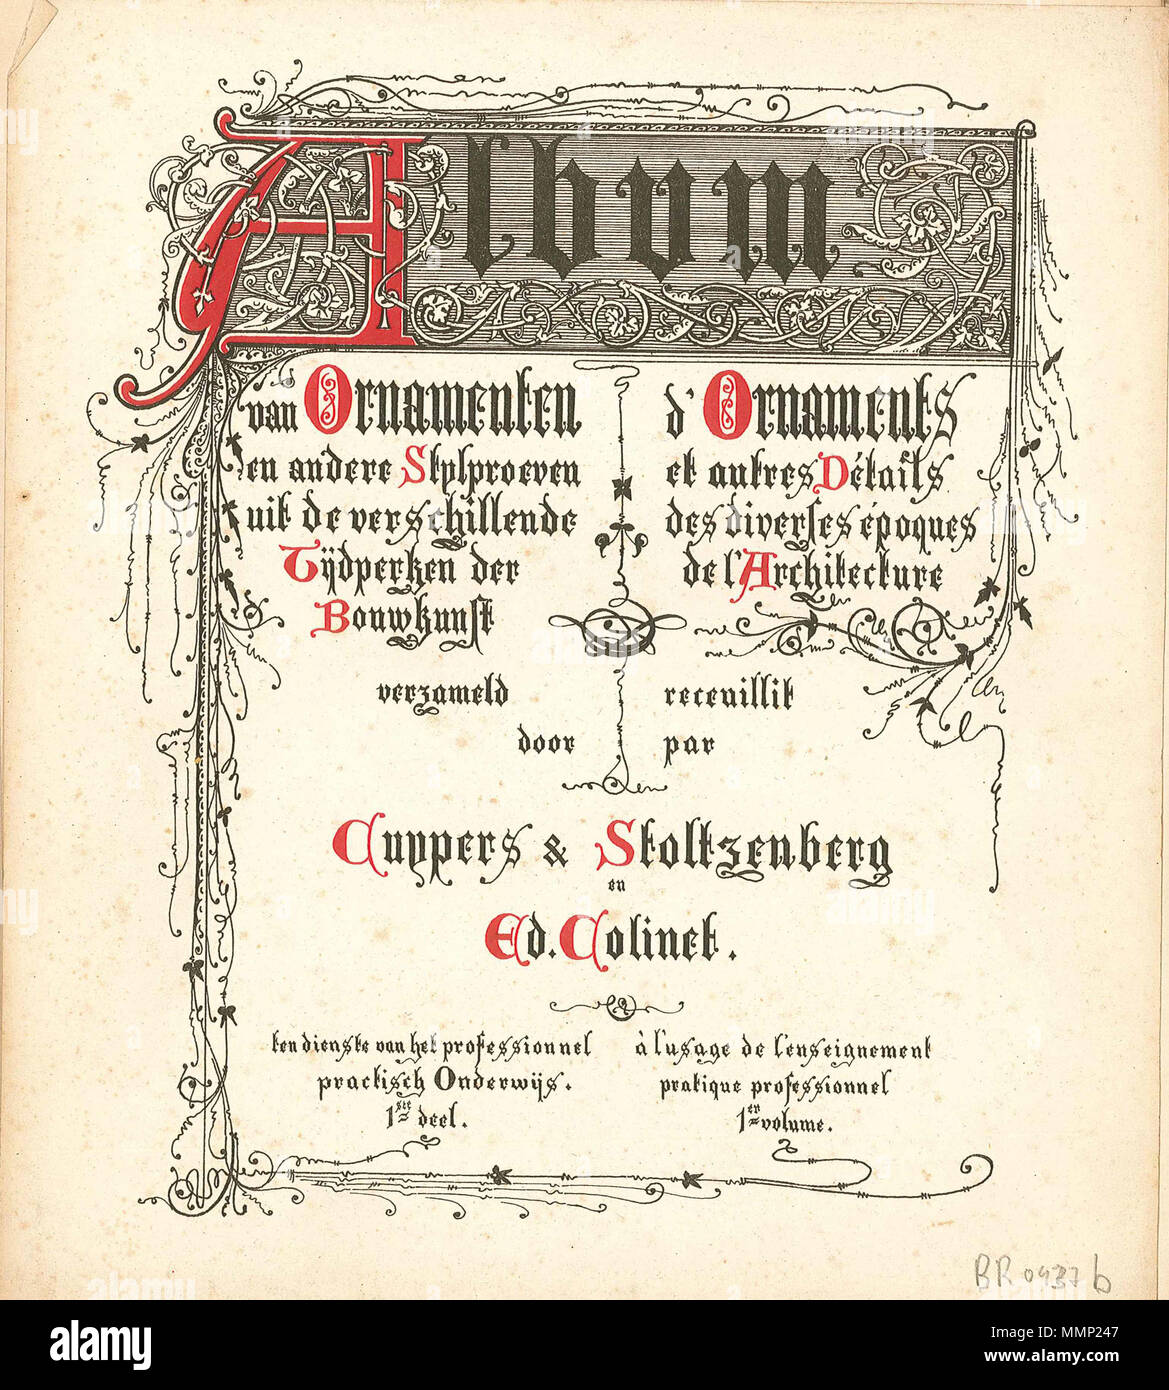 Album
van Ornamenten
en andere Stylproeven
uit de verschillende
Tÿdperken der
Bouwkunst
verzameld
door
d'Ornaments
et autres Détails
des diverses époques
de l'Architecture
recenillit
par
Cuypers & Stoltzenberg
en
Ed. Colinet.
ten dienste van het professionnel
practisch Onderwÿs.
1ste deel.
à l'usage de l'enseignement
pratique professionnel
1er volume.
BR 0437 b
alamy
Image ID: MMP247
www.alamy.com